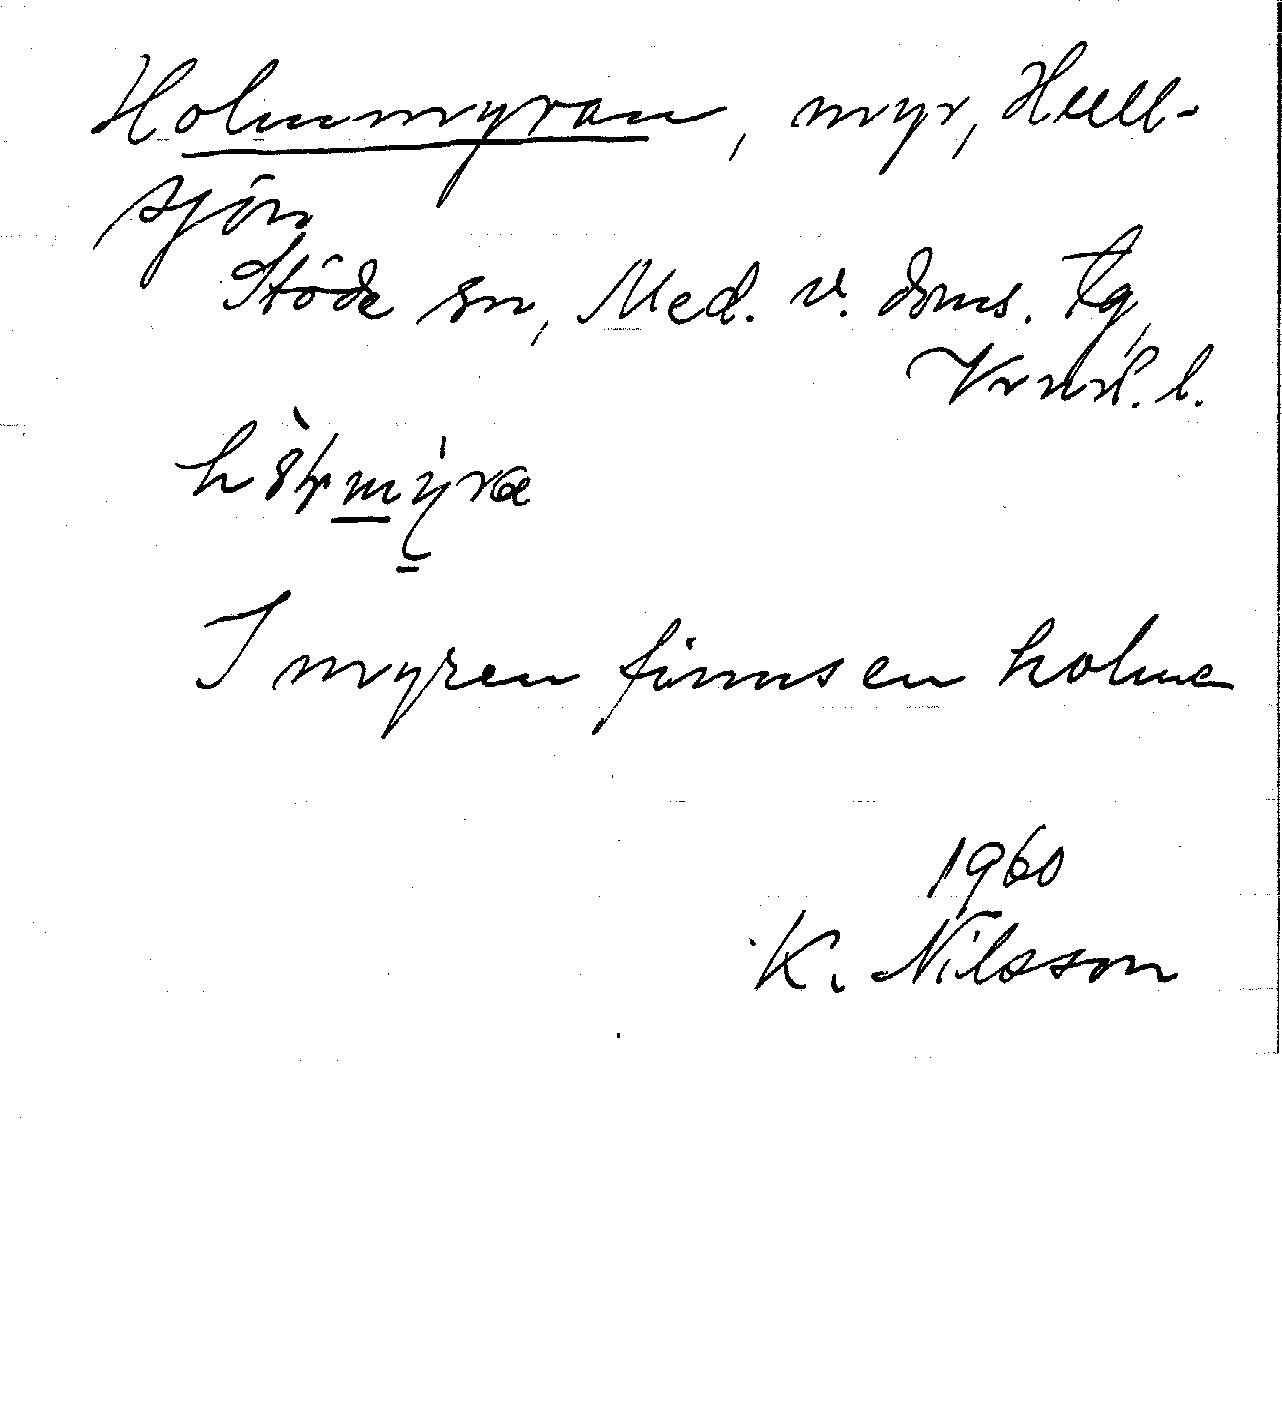 Holmmyran, myr, Hull-
sjön
Stöde sn, Med. v. doms. tg,
Vrnrl. l.
I myren finns en holme
1960
K. Nilsson